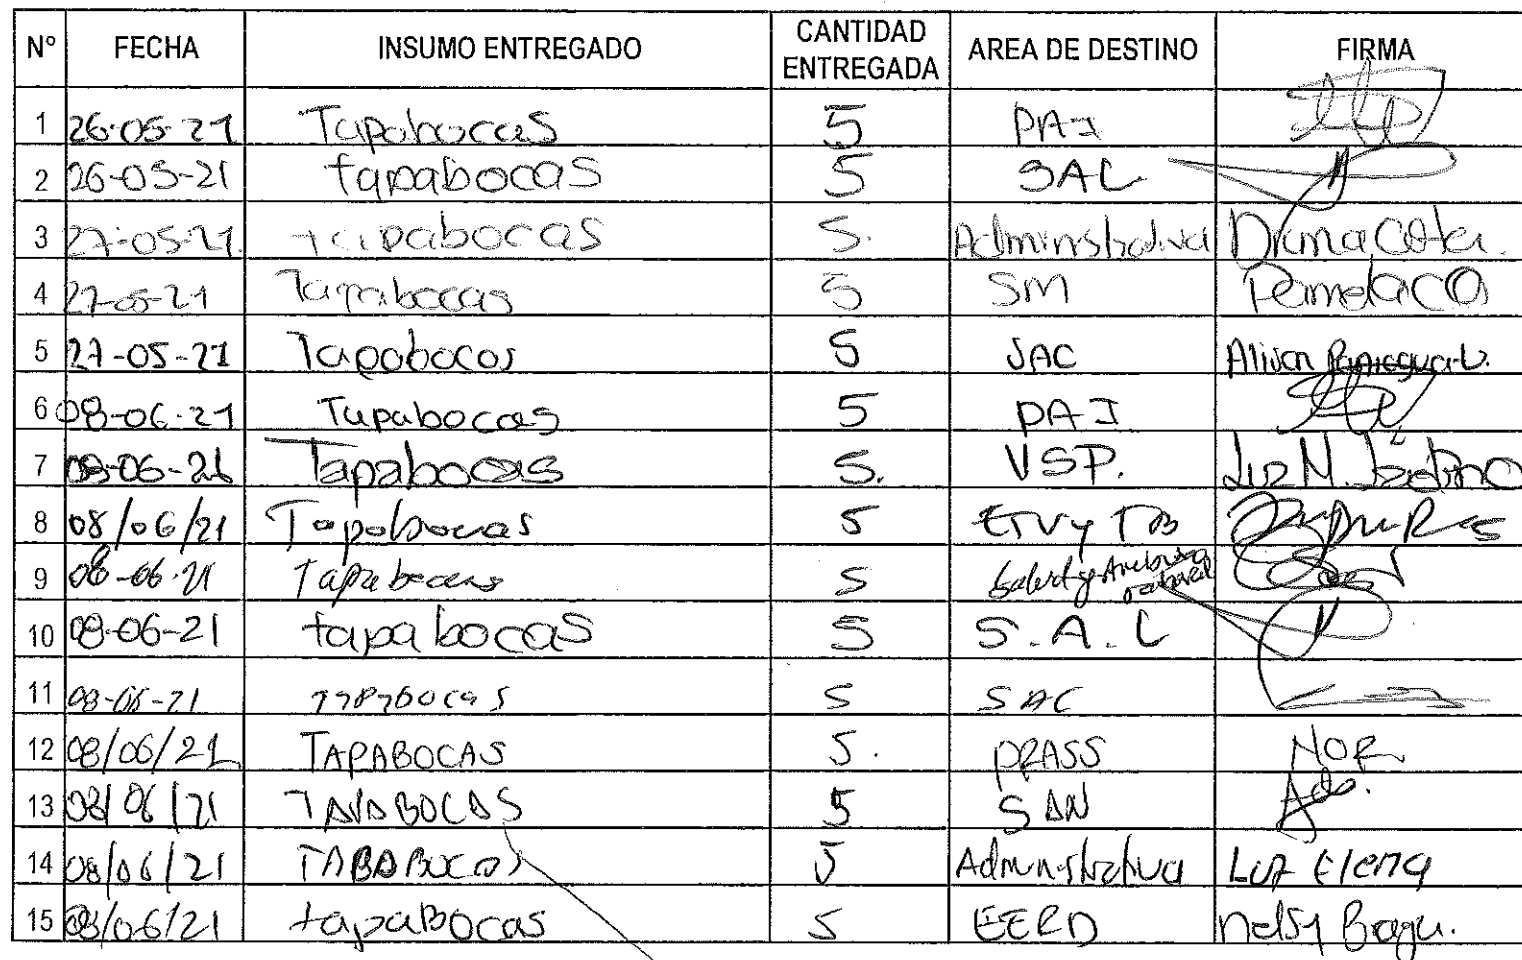 Nº FECHA INSUMO ENTREGADO CANTIDAD ENTREGADA AREA DE DESTINO FIRMA
1 26-05-21 Tapabocas 5 PAI
2 26-05-21 tapabocas 5 SAL
3 27-05-21. tapabocas 5. Administrativa
4 27-05-21 Tapabocas 5 SM Pamela CO
5 27-05-21 Tapabocas 5 SAC
6 08-06-21 Tapabocas 5 PAI
7 08-06-21 Tapabocas 5. VSP. Luz M.
8 08/06/21 Tapabocas 5 ETV y TB
9 08-06-21 Tapabocas 5
10 08-06-21 tapabocas 5 S.A.L
11 08-06-21 TAPABOCAS 5 SAC
12 08/06/21 TAPABOCAS 5. PRASS NOR
13 08/06/21 TAPABOCAS 5 SAN
14 08/06/21 TABABOCAS 5 Administrativa Luz Elena
15 08/06/21 tapaBocas 5 EERD Nelsy